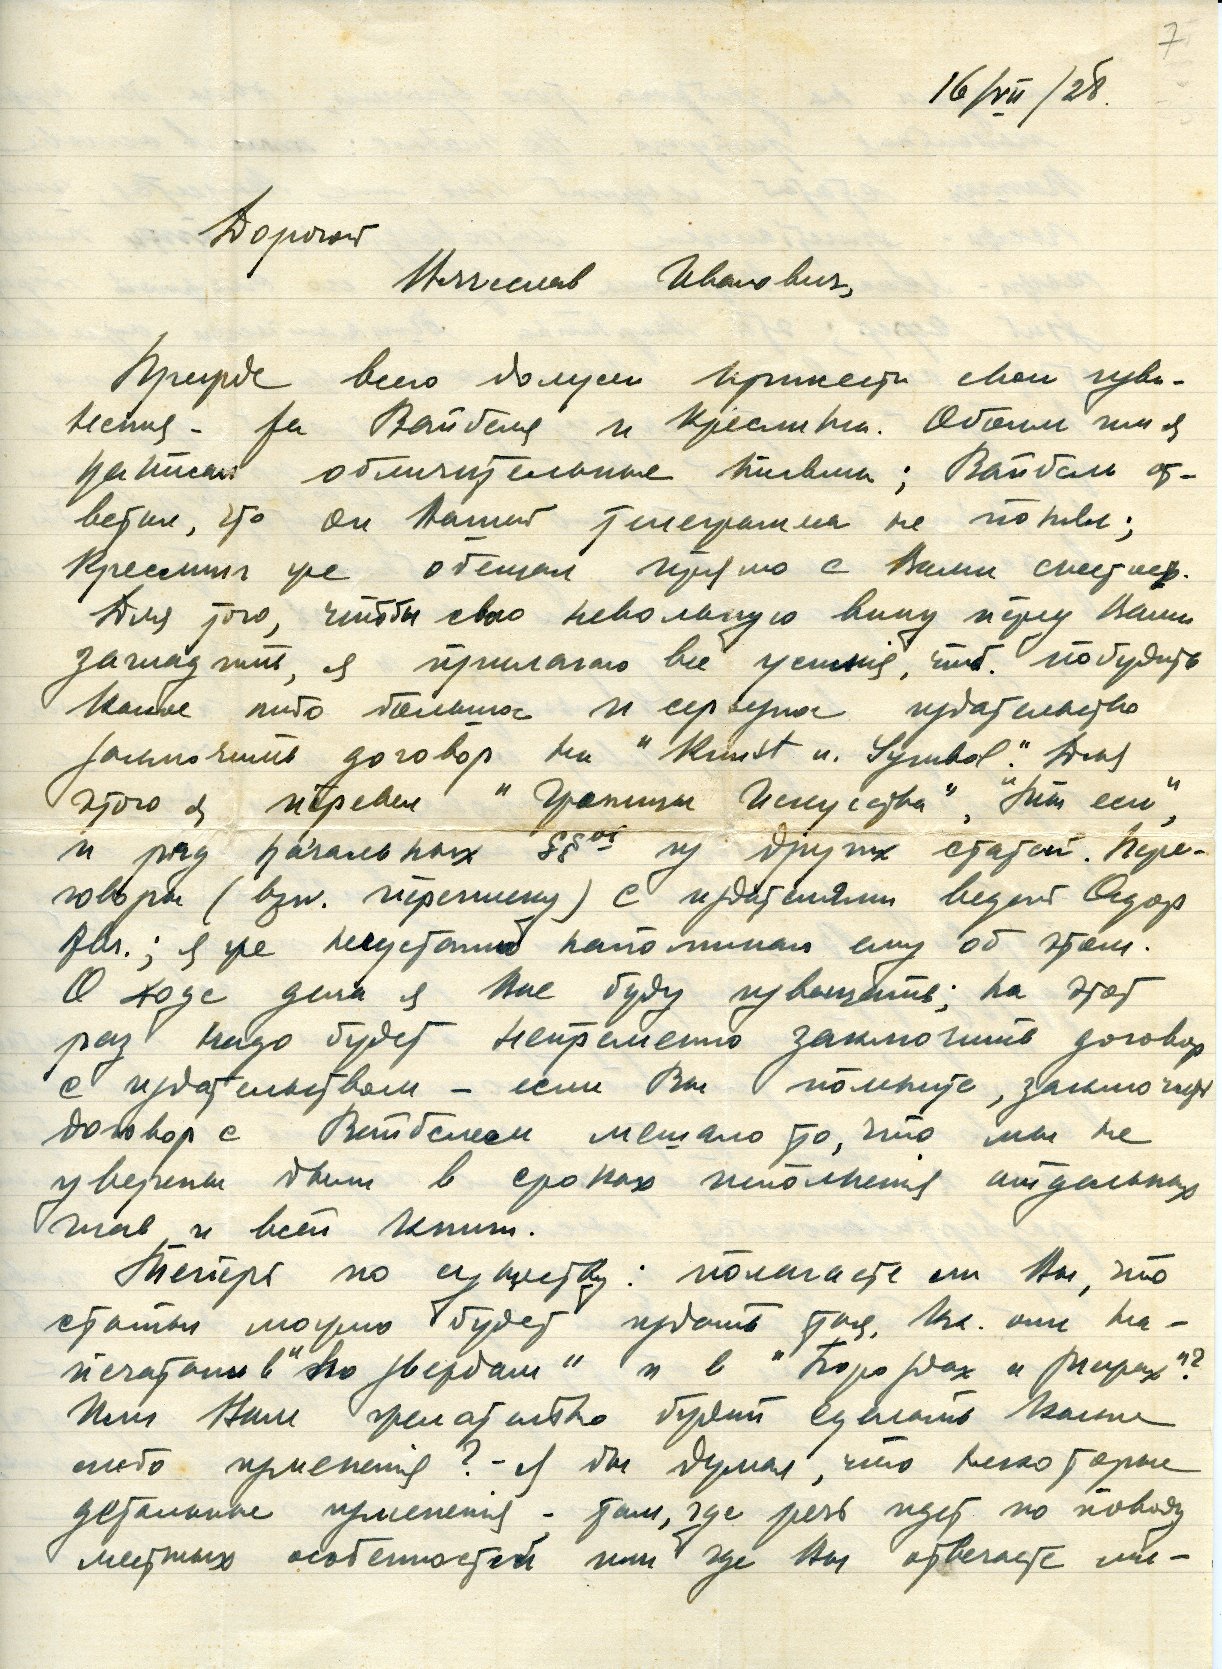 7
16/VII/28.
Дорогой
Вячеслав Иванович,
Прежде всего должен принести свои изви-
нения – за Вайбеля и Креслинга. Обоим им я
написал обличительные письма; Вайбель от-
ветил, что он Вашей телеграммы не понял;
Креслинг же обещал прямо с Вами снестись.
Для того, чтобы свою невольную вину перед Вами
загладить, я прилагаю все усилия, чтб. побудить
какое либо большое и серьезное издательство
заключить договор на "Kunst u. Symbol". Для
этого я перевел "Границы Искусства", "Ты еси",
и ряд начальных §§ов из других статей. Пере-
говоры (взгл. переписку) с издателями ведет Федор
Авг.; я же неустанно напоминаю ему об этом.
О ходе дела я Вас буду извещать; на этот
раз надо будет непременно заключить договор
с издательством – если Вы помните, заключить
договор с Вайбелем мешало то, что мы не
уверены были в сроках исполнения отдельных
глав и всей книги.
Теперь по существу: полагаете ли Вы, что
статьи можно будет издать так, кк. они на-
печатаны в "По Звездам" и в "Бороздах и Межах"?
Или Вам желательно будет сделать какие
либо изменения? – Я бы думал, что некоторые
детальные изменения – там, где речь идет по поводу
местных особенностей или где Вы отвечаете мн-